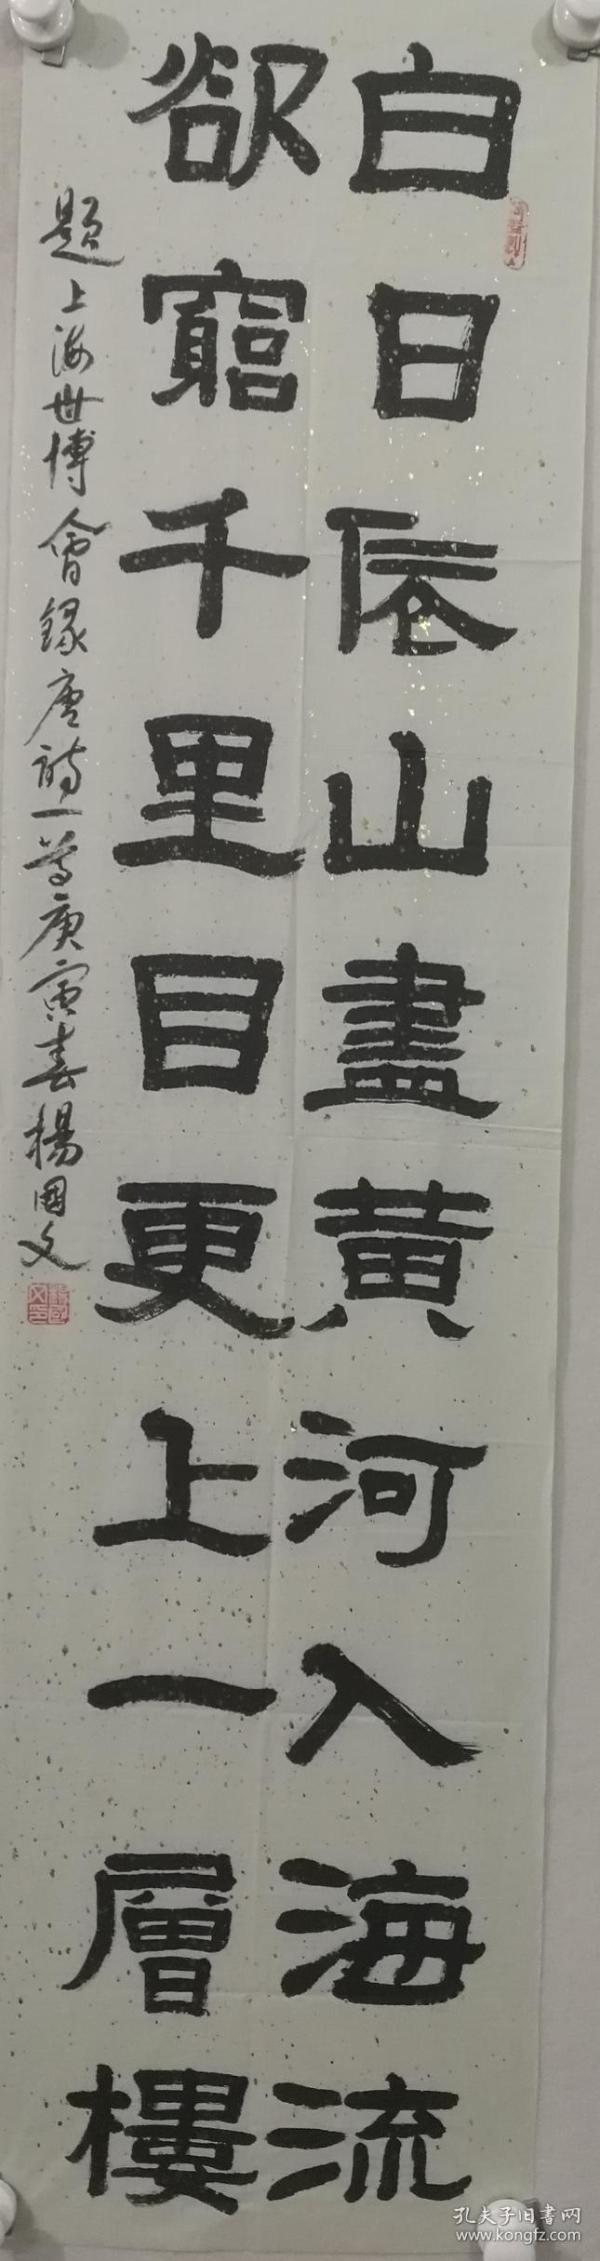 白日依山盡黃河入海流
欲窮千里目更上一層樓
題上海世博會錄唐詩一首庚寅春楊國文
孔夫子旧书网
www.kongfz.com